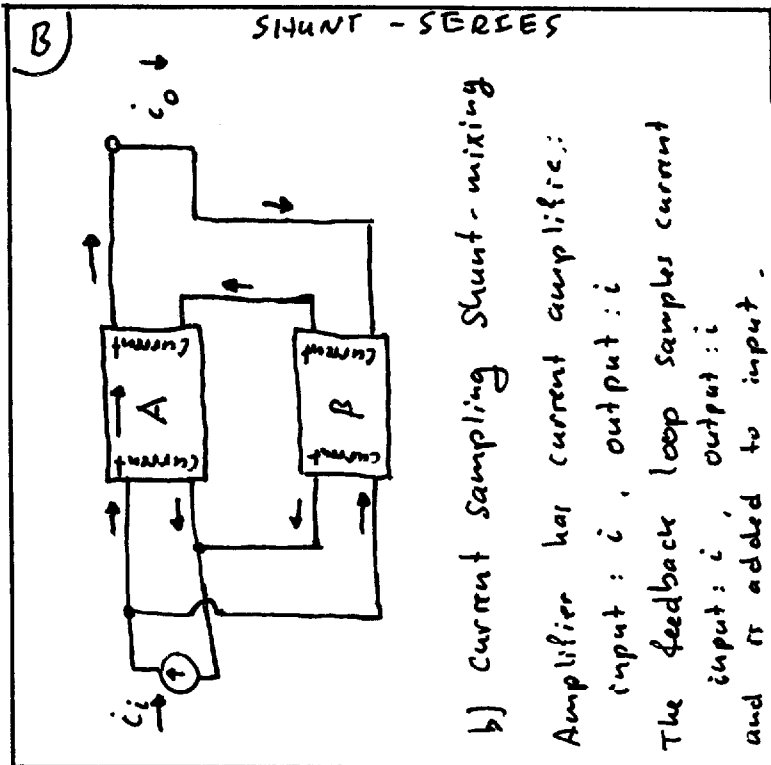 B)
SHUNT - SERIES
i₀
Current
A
Current
Current
β
Current
iᵢ
b) Current sampling shunt-mixing
Amplifier has current amplifie:
input : i , output : i
The feedback loop samples current
input : i , output : i
and is added to input.